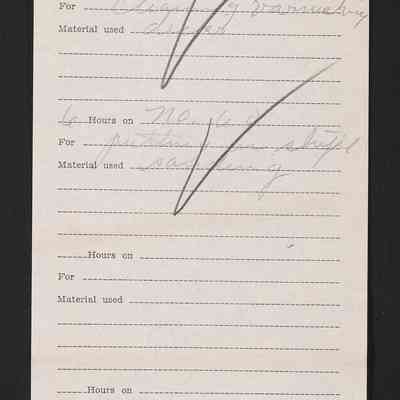 For cleaning & varnishing
Material used
6 Hours on No.
For putting on stripe
Material used sanding
Hours on
For
Material used
Hours on